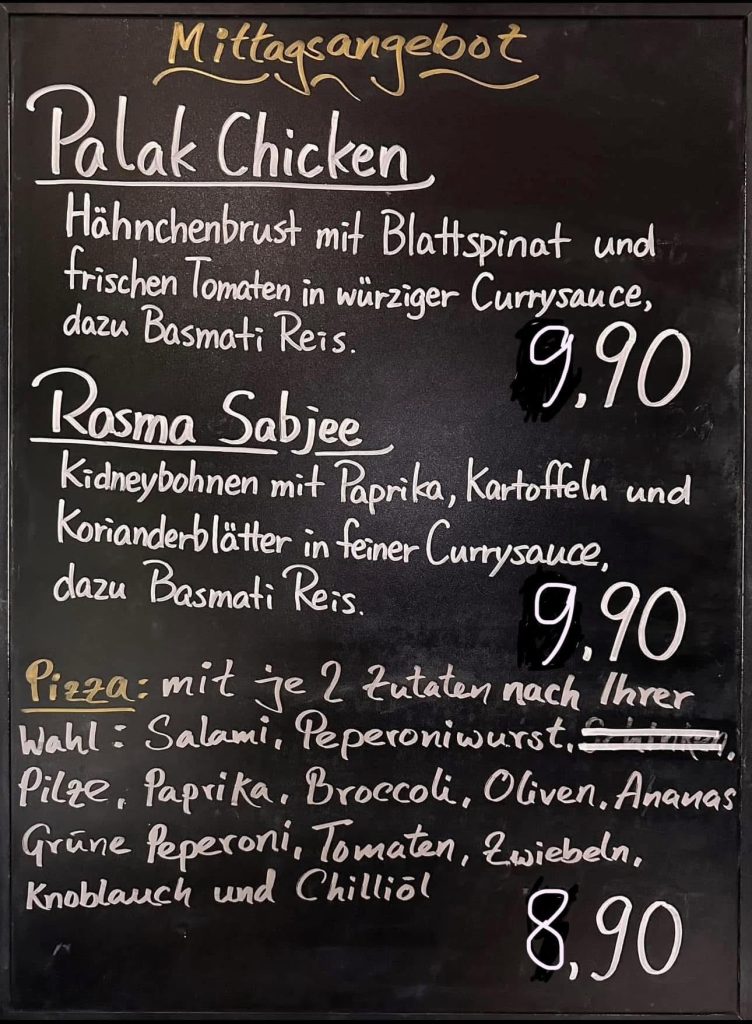 Mittagsangebot
Palak Chicken
Hähnchenbrust mit Blattspinat und
frischen Tomaten in würziger Currysauce,
dazu Basmati Reis.
9,90
Rasma Sabjee
Kidneybohnen mit Paprika, Kartoffeln und
Korianderblätter in feiner Currysauce,
dazu Basmati Reis.
9,90
Pizza: mit je 2 Zutaten nach Ihrer
Wahl: Salami, Peperoniwurst,
Pilze, Paprika, Broccoli, Oliven, Ananas
Grüne Peperoni, Tomaten, Zwiebeln,
Knoblauch und Chilliöl
8,90